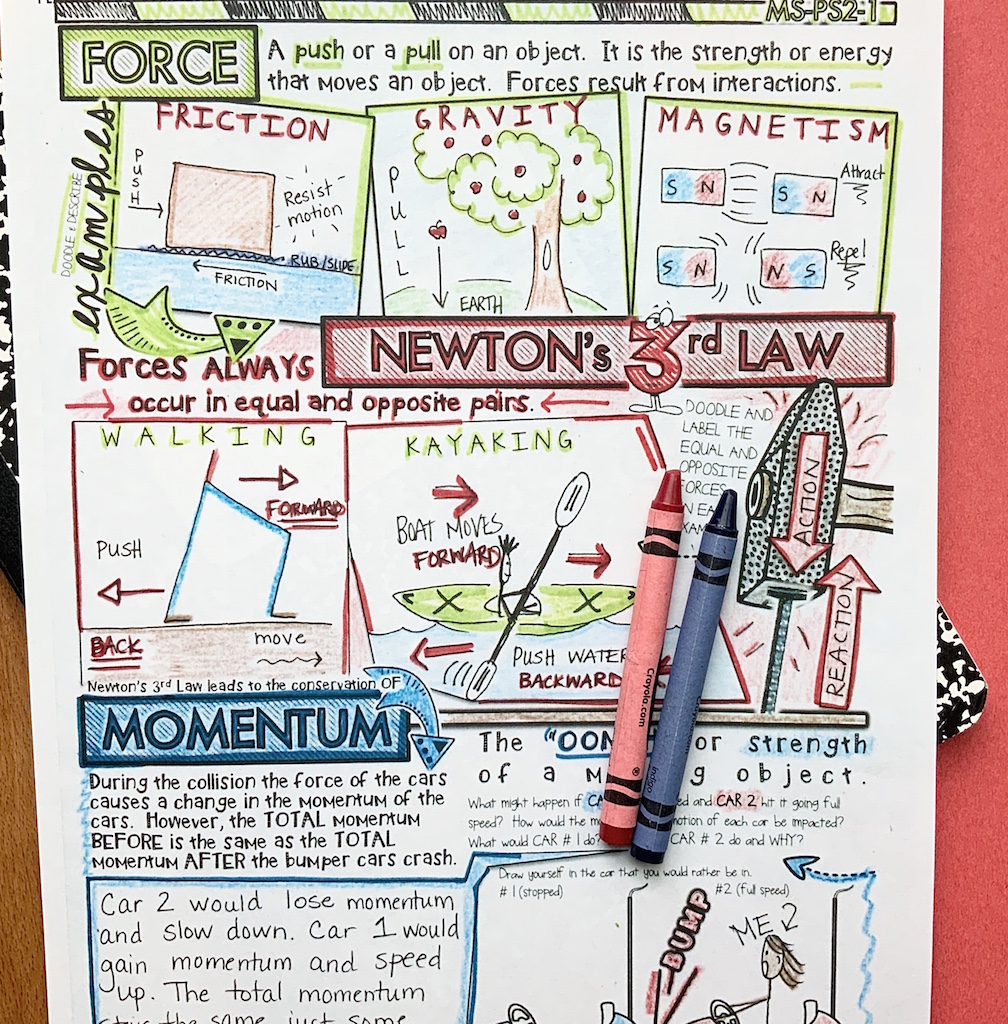 MS-PS2-1
FORCE
A push or a pull on an object. It is the strength or energy
that moves an object. Forces result from interactions.
DOODLE & DESCRIBE
examples
FRICTION
PUSH
Resist
motion
RUB/SLIDE
FRICTION
GRAVITY
PULL
EARTH
MAGNETISM
S N S N
Attract
S N N S
Repel
NEWTON's 3rd LAW
Forces ALWAYS
occur in equal and opposite pairs.
DOODLE AND
LABEL THE
EQUAL AND
OPPOSITE
FORCES
WALKING
FORWARD
PUSH
BACK
move
KAYAKING
BOAT MOVES
FORWARD
PUSH WATER
BACKWARD
ACTION
REACTION
Newton's 3rd Law leads to the conservation OF
MOMENTUM
The or strength
of a object.
During the collision the force of the cars
causes a change in the momentum of the
cars. However, the TOTAL momentum
BEFORE is the same as the TOTAL
momentum AFTER the bumper cars crash.
What might happen if and CAR 2 hit it going full
speed? How would the of each car be impacted?
What would CAR # 1 do? CAR # 2 do and WHY?
Draw yourself in the car that you would rather be in.
# 1 (stopped)
#2 (full speed)
BUMP
ME 2
Car 2 would lose momentum
and slow down. Car 1 would
gain momentum and speed
up. The total momentum
the same just some
crayola.com
indigo